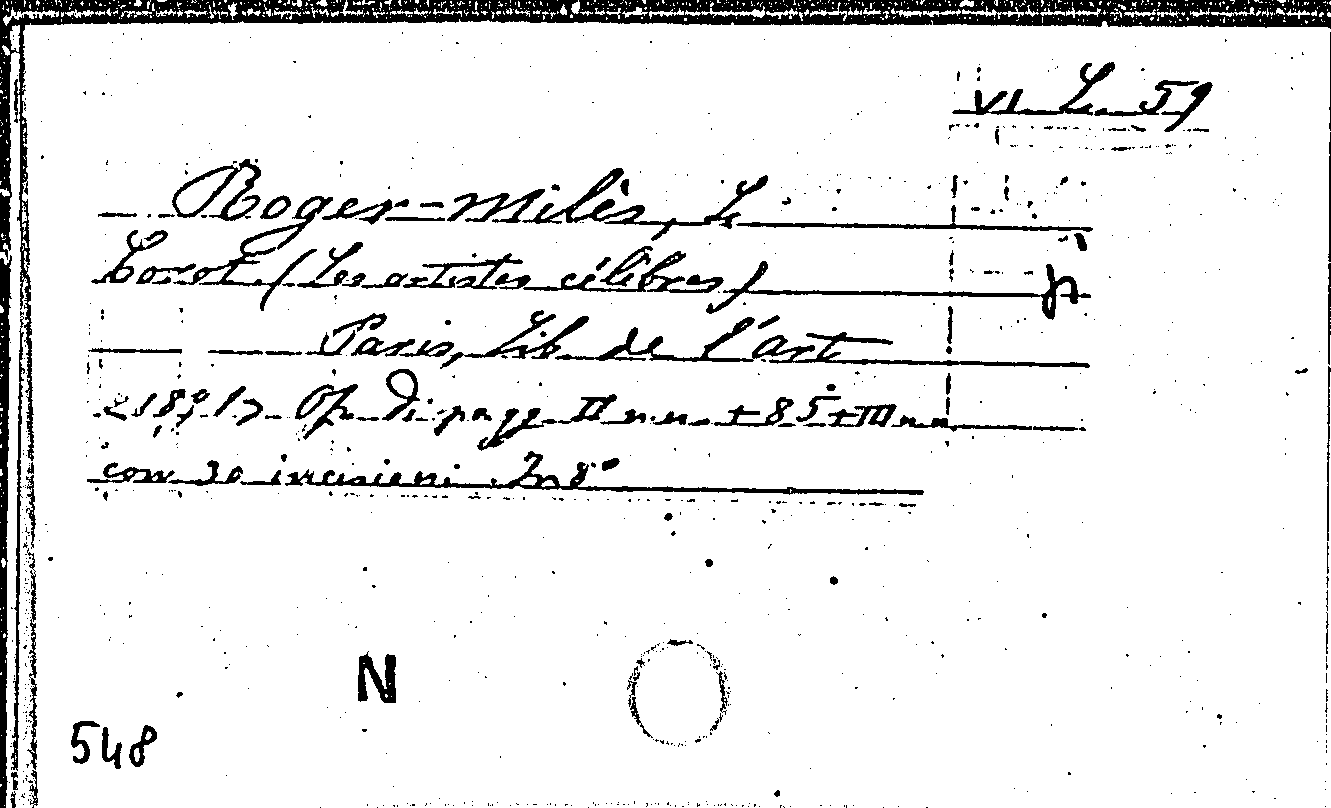 VI. L. 59
Roger-Milès, L.
Corot. (Les artistes célèbres)
Paris, Lib. de l'art
<1891> Op. di pagg. II n.n. + 85 + III n.n.
con 30 incisioni. In 8°
N
548